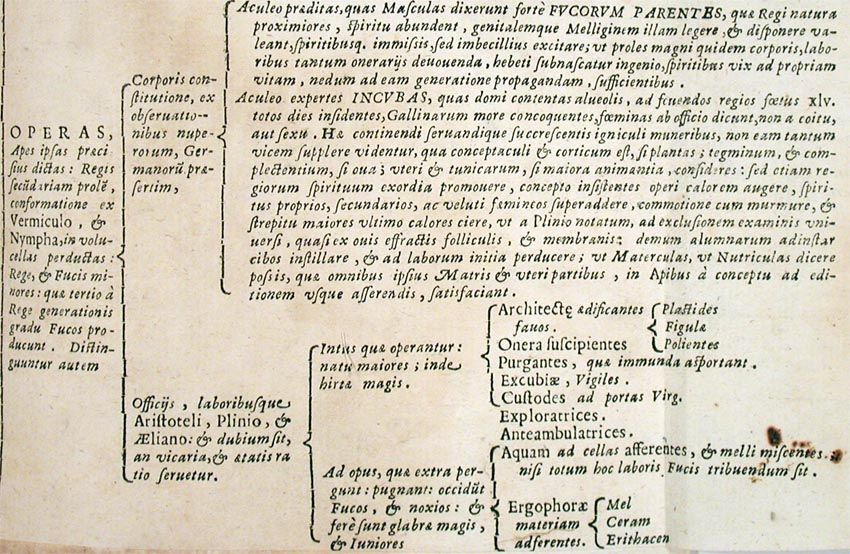 Aculeo præditas, quas Masculas dixerunt fortè FVCORVM PARENTES, quæ Regi natura
proximiores, spiritu abundent, genitalemque Melliginem illam legere, & disponere va-
leant, spiritibusq. immissis, sed imbecillius excitare; vt proles magni quidem corporis, labo-
ribus tantum onerarijs deuouenda, hebeti subnascatur ingenio, spiritibus vix ad propriam
vitam, nedum ad eam generatione propagandam, sufficientibus.
Corporis con-
stitutione, ex
obseruatio-
nibus nupe-
rorum, Ger-
manorũ præ-
sertim,
Aculeo expertes INCVBAS, quas domi contentas alueolis, ad fouendos regios fœtus xlv.
totos dies insidentes, Gallinarum more concoquentes, fœminas ab officio dicunt, non a coitu,
aut sexu. Hæ continendi seruandique succrescentis igniculi muneribus, non eam tantum
vicem supplere videntur, qua conceptaculi & corticum est, si plantas; tegminum, & com-
plectentium, si oua; vteri & tunicarum, si maiora animantia, consideres: sed etiam re-
giorum spirituum exordia promouere, concepto insistentes operi calorem augere, spiri-
tus proprios, secundarios, ac veluti fæmineos superaddere, commotione cum murmure, &
strepitu maiores vltimo calores ciere, vt a Plinio notatum, ad exclusionem examinis vni-
uersi, quasi ex ouis effractis folliculis, & membranis: demum alumnarum adinstar
cibos instillare, & ad laborum initia perducere; vt Materculas, vt Nutriculas dicere
possis, quæ omnibus ipsius Matris & vteri partibus, in Apibus à conceptu ad edi-
tionem vsque afferendis, satisfaciant.
OPERAS,
Apes ipsas præci
sius dictas: Regis
secũdariam prolẽ,
conformatione ex
Vermiculo, &
Nympha, in volu-
cellas perductas:
Rege, & Fucis mi-
nores: quæ tertio à
Rege generationis
gradu Fucos pro-
ducunt. Distin-
guuntur autem
Officijs, laboribusque
Aristoteli, Plinio, &
Æliano: & dubium sit,
an vicaria, & ætatis ra
tio seruetur.
Intus quæ operantur:
natu maiores; inde
hirtæ magis.
Architectę ædificantes
fauos.
Plastides
Figulæ
Polientes
Onera suscipientes
Purgantes, quæ immunda asportant.
Excubiæ, Vigiles.
Custodes ad portas Virg.
Ad opus, quæ extra per-
gunt: pugnant: occidũt
Fucos, & noxios: &
ferè sunt glabræ magis,
& Iuniores
Exploratrices.
Anteambulatrices.
Aquam ad cellas afferentes, & melli miscentes.
nisi totum hoc laboris Fucis tribuendum sit.
Ergophoræ
materiam
adferentes.
Mel
Ceram
Erithacen